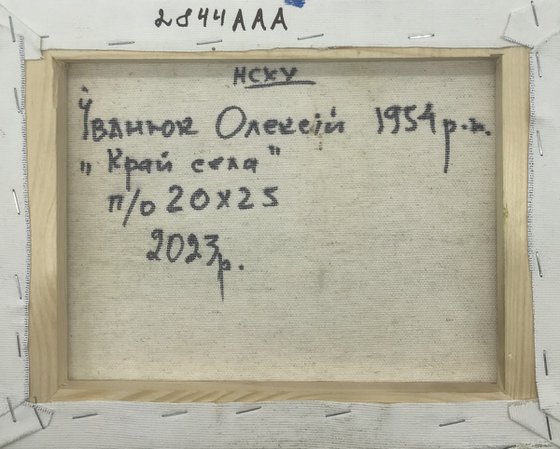 2844AAA
НСХУ
Іванюк Олексій 1954 р.н.
"Край села"
п/о 20х25
2023р.